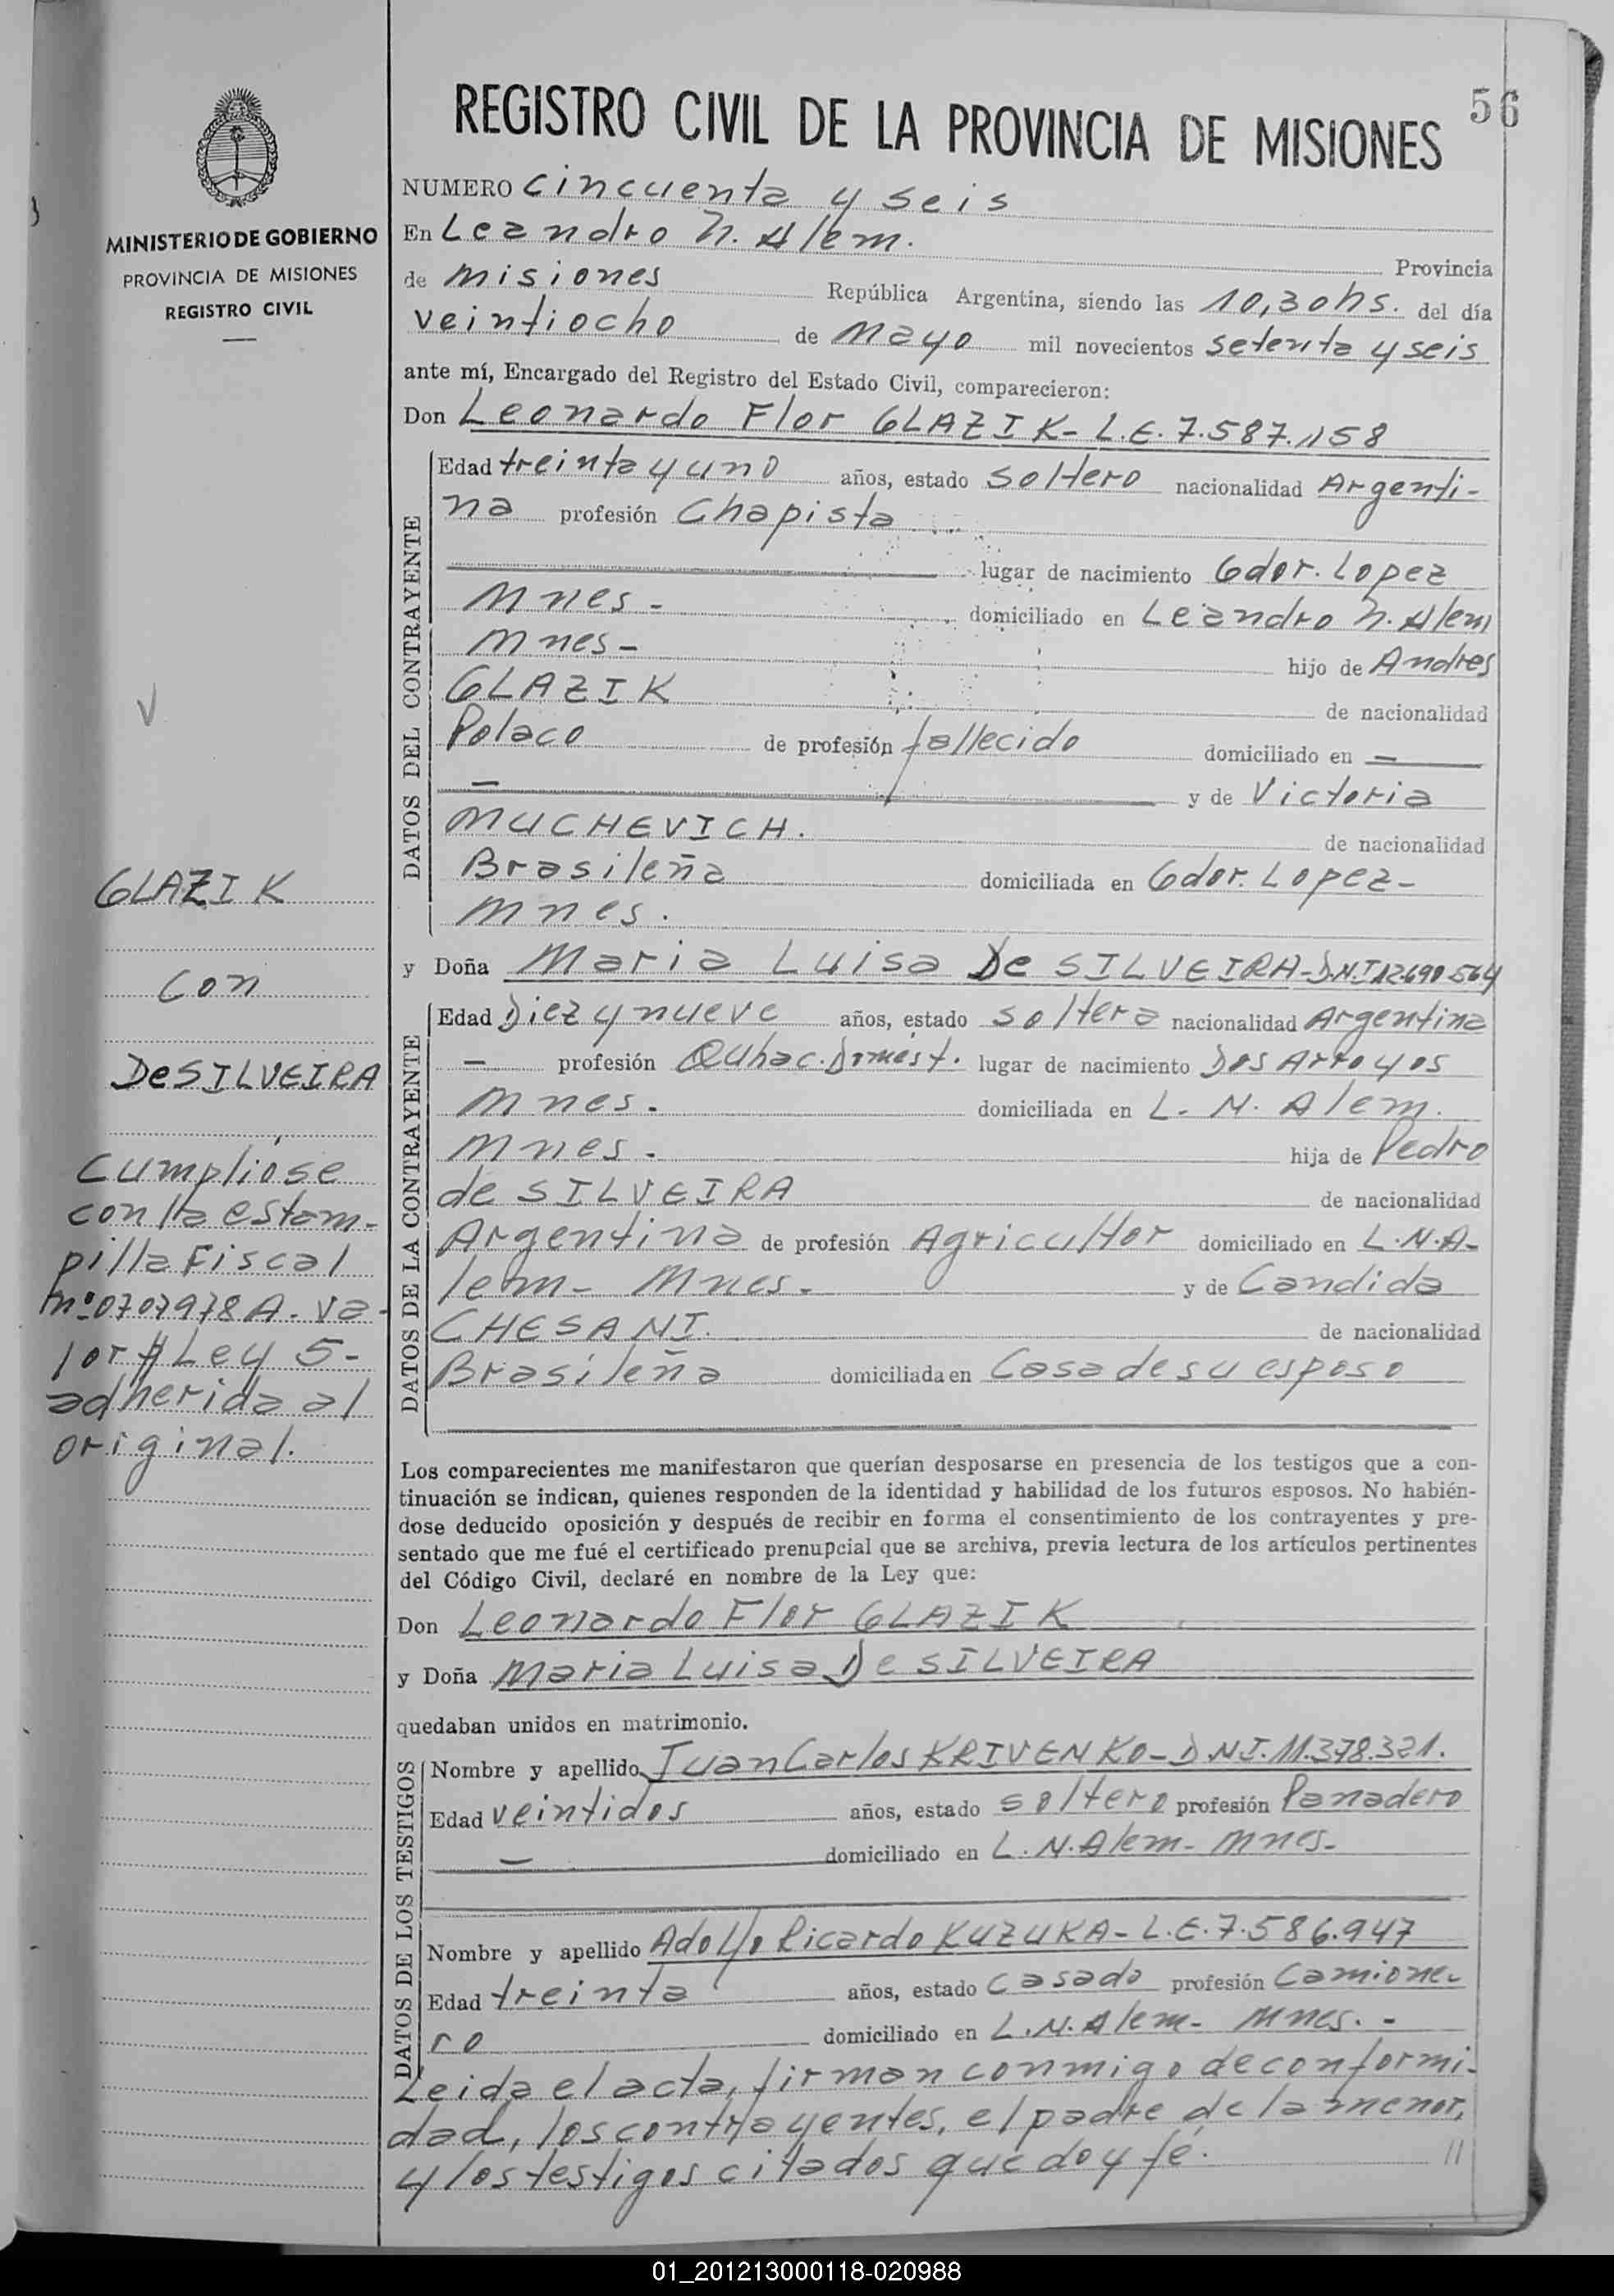 56
REGISTRO CIVIL DE LA PROVINCIA DE MISIONES
MINISTERIO DE GOBIERNO
PROVINCIA DE MISIONES
REGISTRO CIVIL
NUMERO cincuenta y seis
En Leandro N. Alem. Provincia
de Misiones República Argentina, siendo las 10,30hs. del día
veintiocho de Mayo mil novecientos setenta y seis
ante mí, Encargado del Registro del Estado Civil, comparecieron:
Don Leonardo Flor GLAZIK- L.E. 7.587.158
DATOS DEL CONTRAYENTE
Edad treinta y uno años, estado soltero nacionalidad Argenti-
na profesión Chapista
lugar de nacimiento Gdor. Lopez
Mnes- domiciliado en Leandro N. Alem
Mnes- hijo de Andres
GLAZIK de nacionalidad
Polaco de profesión fallecido domiciliado en —
— y de Victoria
MUCHEVICH. de nacionalidad
Brasileña domiciliada en Gdor. Lopez-
Mnes.
y Doña Maria Luisa De SILVEIRA-D.N.I 12.690.564
DATOS DE LA CONTRAYENTE
Edad Diez y nueve años, estado soltera nacionalidad Argentina
— profesión Quhac. Domést. lugar de nacimiento Dos Arroyos
Mnes. domiciliada en L. N. Alem.
Mnes. hija de Pedro
de SILVEIRA de nacionalidad
Argentina de profesión Agricultor domiciliado en L.N.A-
lem- Mnes. y de Candida
CHESANI. de nacionalidad
Brasileña domiciliada en Casa de su esposo
Los comparecientes me manifestaron que querían desposarse en presencia de los testigos que a con-
tinuación se indican, quienes responden de la identidad y habilidad de los futuros esposos. No habién-
dose deducido oposición y después de recibir en forma el consentimiento de los contrayentes y pre-
sentado que me fué el certificado prenupcial que se archiva, previa lectura de los artículos pertinentes
del Código Civil, declaré en nombre de la Ley que:
Don Leonardo Flor GLAZIK
y Doña Maria Luisa De SILVEIRA
quedaban unidos en matrimonio.
DATOS DE LOS TESTIGOS
Nombre y apellido Juan Carlos KRIVENKO-D.N.I. 11.378.321.
Edad veintidos años, estado soltero profesión Panadero
— domiciliado en L. N. Alem- Mnes-
Nombre y apellido Adolfo Ricardo KUZUKA- L.E. 7.586.947
Edad treinta años, estado Casado profesión Camione-
ro domiciliado en L.N. Alem- Mnes.-
Leida el acta, firman conmigo de conformi-
dad, los contrayentes, el padre de la menor,
y los testigos citados que doy fé. //
GLAZIK
con
De SILVEIRA
Cumpliose
con la estam-
pilla Fiscal
nº 0707978 A. va-
lor $ Ley 5-
adherida al
original.
01_201213000118-020988